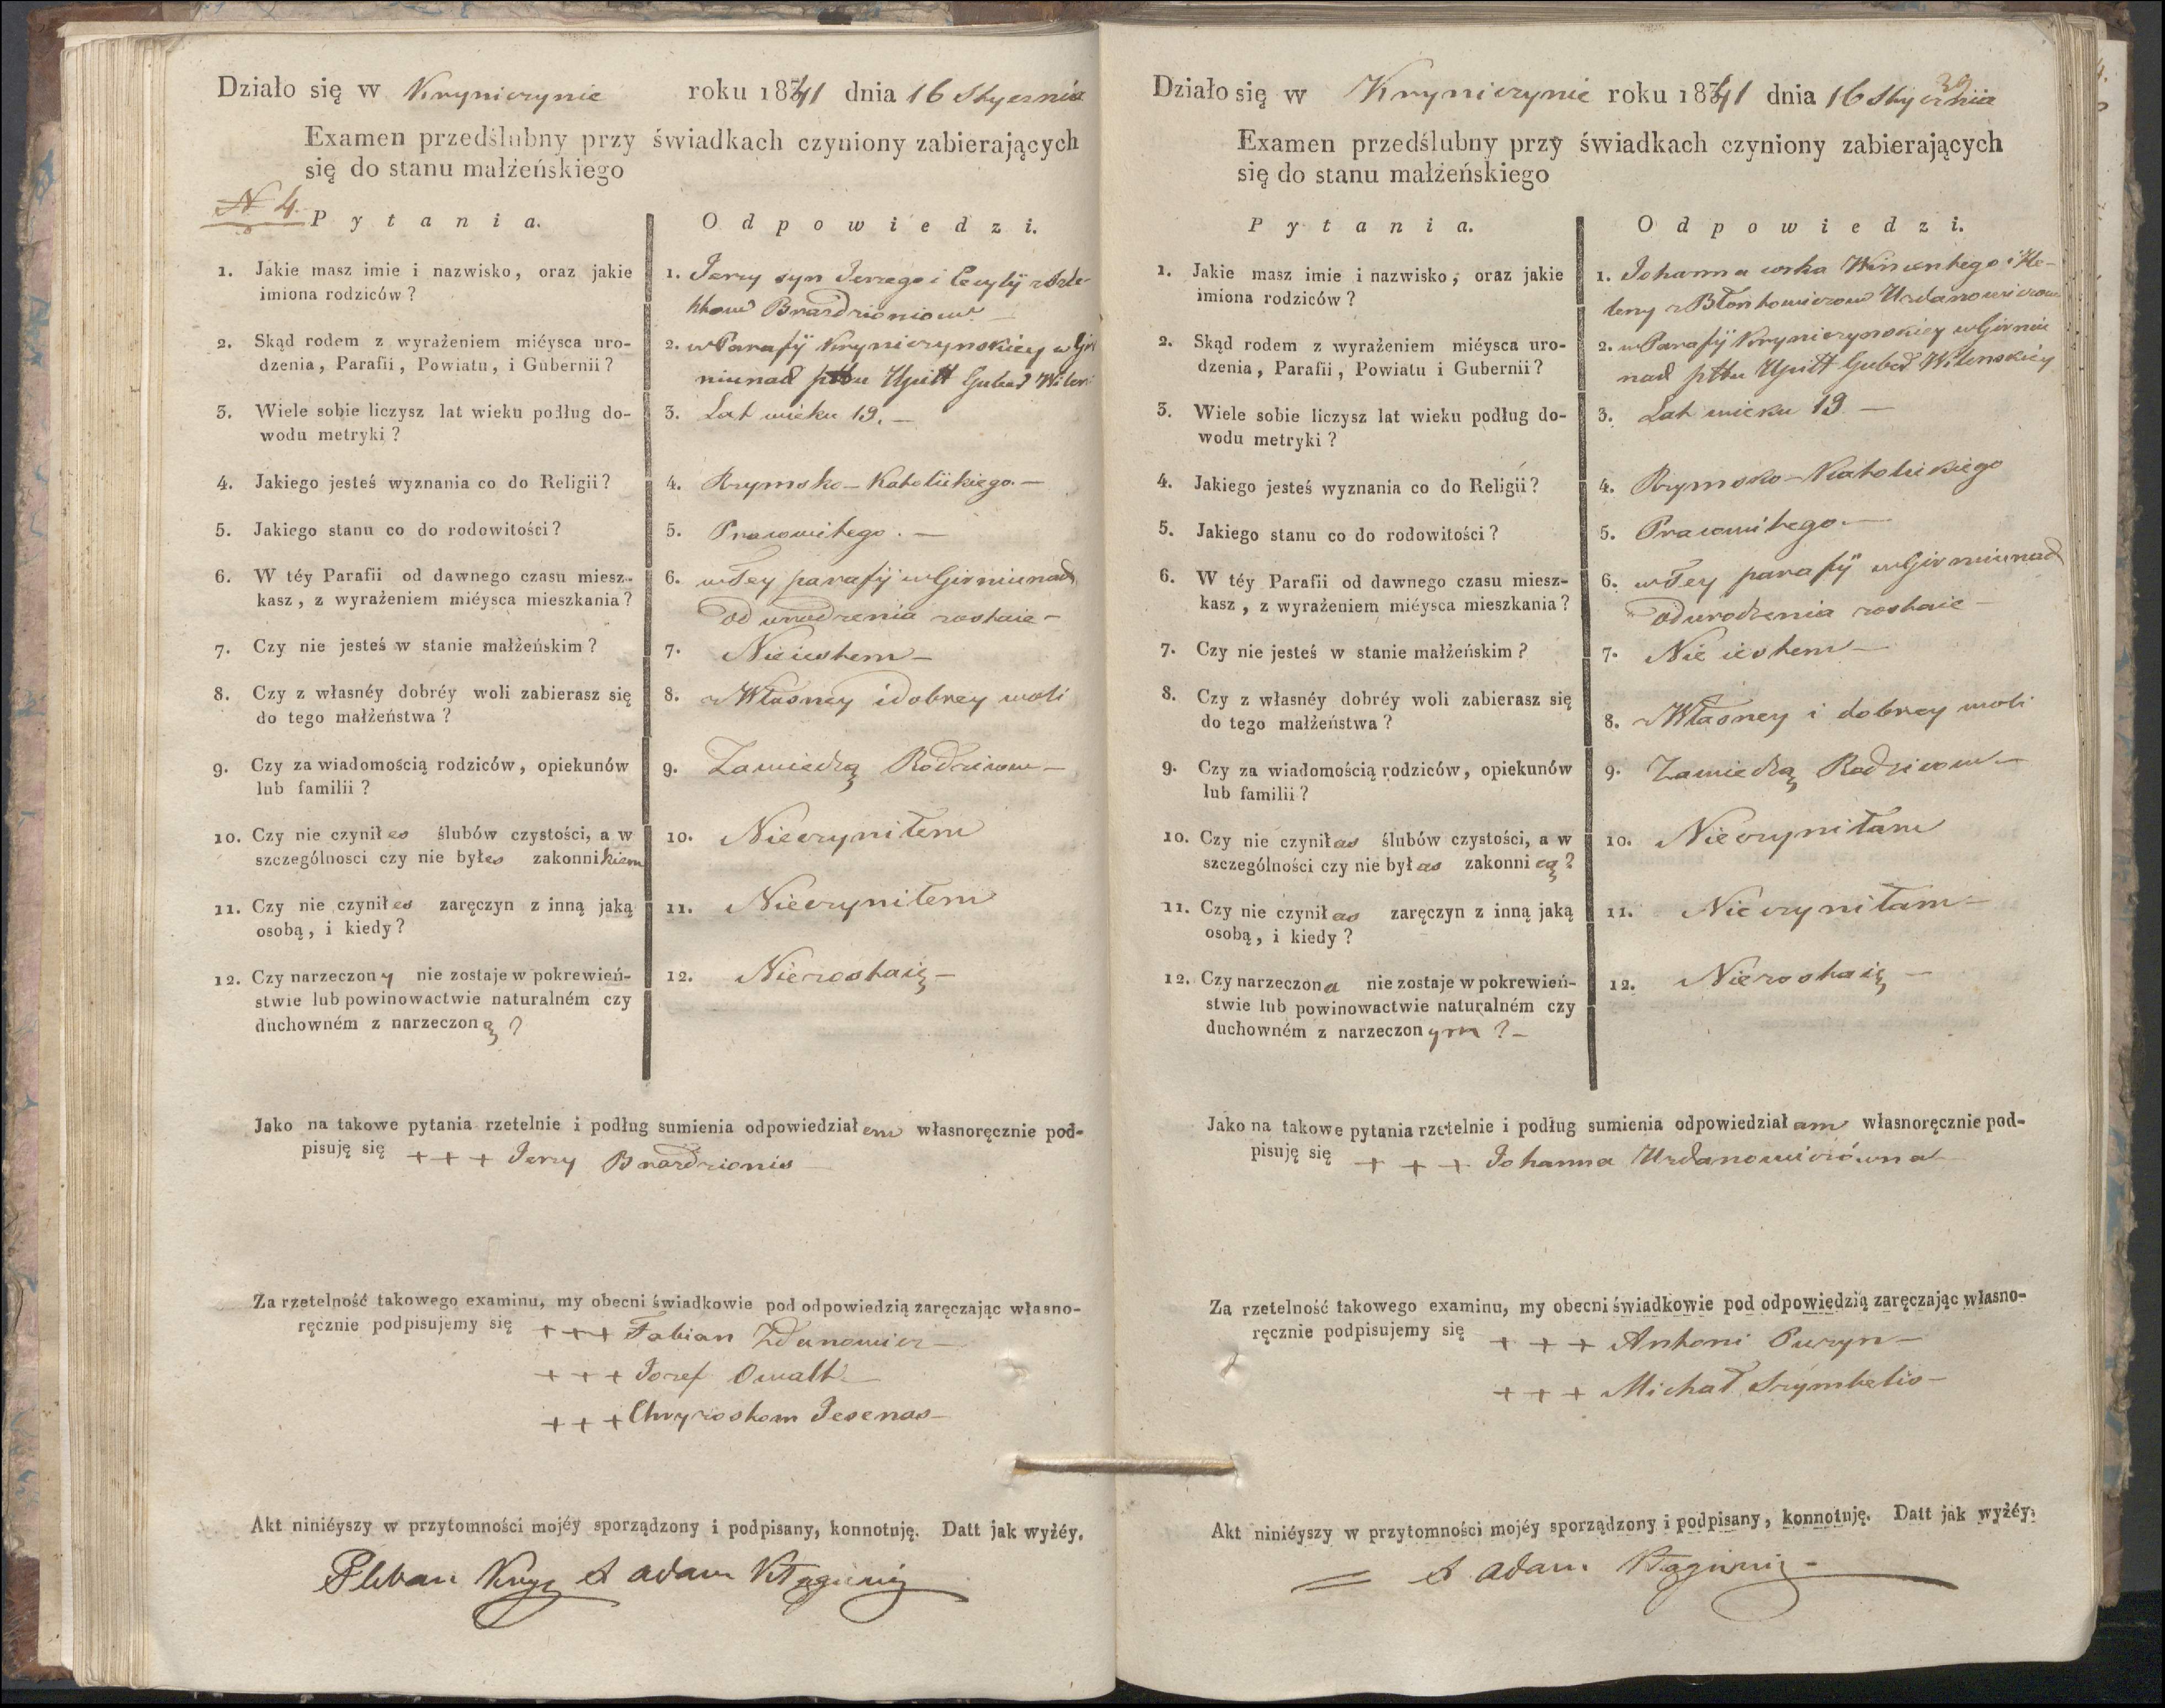 Działo się w Kryniczynie roku 1841 dnia 16 Stycznia
Examen przedślubny przy świadkach czyniony zabierających
się do stanu małżeńskiego
N 4.
Pytania.
Odpowiedzi.
1. Jakie masz imie i nazwisko, oraz jakie
imiona rodziców?
1. Jerzy syn Jerzego i Cecylij z
Brazdzioniow
2. Skąd rodem z wyrażeniem miéysca uro-
dzenia, Parafii, Powiatu, i Gubernii?
2. w Parafij Kryniczynskiey w Gir
niunach pttu Upitt Guber Wilen
3. Wiele sobie liczysz lat wieku podług do-
wodu metryki?
3. Lat wieku 19. —
4. Jakiego jesteś wyznania co do Religii?
4. Rzymsko-Katolickiego. —
5. Jakiego stanu co do rodowitości?
5. Pracowitego. —
6. W téy Parafii od dawnego czasu miesz-
kasz, z wyrażeniem miéysca mieszkania?
6. w Tey parafij w Girniunach
od urodzenia zostaie —
7. Czy nie jesteś w stanie małżeńskim?
7. Nieiestem —
8. Czy z własnéy dobréy woli zabierasz się
do tego małżeństwa?
8. z Własney i dobrey woli
9. Czy za wiadomością rodziców, opiekunów
lub familii?
9. Zawiedzą Rodzicow —
10. Czy nie czyniłes ślubów czystości, a w
szczególnosci czy nie byłes zakonnikiem
10. Nieczyniłem
11. Czy nie czyniłes zaręczyn z inną jaką
osobą, i kiedy?
11. Nieczyniłem
12. Czy narzeczony nie zostaje w pokrewień-
stwie lub powinowactwie naturalném czy
duchowném z narzeczoną?
12. Niezostaię —
Jako na takowe pytania rzetelnie i podług sumienia odpowiedziałem własnoręcznie pod-
pisuję się + + + Jerzy Brazdzionis
Za rzetelność takowego examinu, my obecni świadkowie pod odpowiedzią zaręczając własno-
ręcznie podpisujemy się + + + Fabian Zdanowicz —
+ + + Jozef Owalt —
+ + + Chryzostom Jesenas —
Akt niniéyszy w przytomności mojéy sporządzony i podpisany, konnotuję. Datt jak wyżéy.
Pleban Kryn X Adam
Działo się w Kryniczynie roku 1841 dnia 16 Stycznia
Examen przedślubny przy świadkach czyniony zabierających
się do stanu małżeńskiego
Pytania.
Odpowiedzi.
1. Jakie masz imie i nazwisko, oraz jakie
imiona rodziców?
1. Johanna corka Wincentego i He-
leny z Błontowiczow Urdanowiczow
2. Skąd rodem z wyrażeniem miéysca uro-
dzenia, Parafii, Powiatu i Gubernii?
2. w Parafij Kryniczynskiey w Girniu
nach pttu Upitt Guber Wilenskiey
3. Wiele sobie liczysz lat wieku podług do-
wodu metryki?
3. Lat wieku 19 —
4. Jakiego jesteś wyznania co do Religii?
4. Rzymsko-Katolickiego
5. Jakiego stanu co do rodowitości?
5. Pracowitego. —
6. W téy Parafii od dawnego czasu miesz-
kasz, z wyrażeniem miéysca mieszkania?
6. w Tey parafij w Girniunach
od urodzenia zostaie —
7. Czy nie jesteś w stanie małżeńskim?
7. Nie iestem —
8. Czy z własnéy dobréy woli zabierasz się
do tego małżeństwa?
8. z Własney i dobrey woli
9. Czy za wiadomością rodziców, opiekunów
lub familii?
9. Zawiedzą Rodzicow —
10. Czy nie czyniłas ślubów czystości, a w
szczególności czy nie byłas zakonnicą?
10. Nieczyniłam
11. Czy nie czyniłas zaręczyn z inną jaką
osobą, i kiedy?
11. Nieczyniłam —
12. Czy narzeczona nie zostaje w pokrewień-
stwie lub powinowactwie naturalném czy
duchowném z narzeczonym? —
12. Niezostaię —
Jako na takowe pytania rzetelnie i podług sumienia odpowiedziałam własnoręcznie pod-
pisuję się + + + Johanna Urdanowiczówna
Za rzetelność takowego examinu, my obecni świadkowie pod odpowiedzią zaręczając własno-
ręcznie podpisujemy się + + + Antoni Puzyn —
+ + + Michał Szymbelis —
Akt niniéyszy w przytomności mojéy sporządzony i podpisany, konnotuję. Datt jak wyżéy.
X Adam